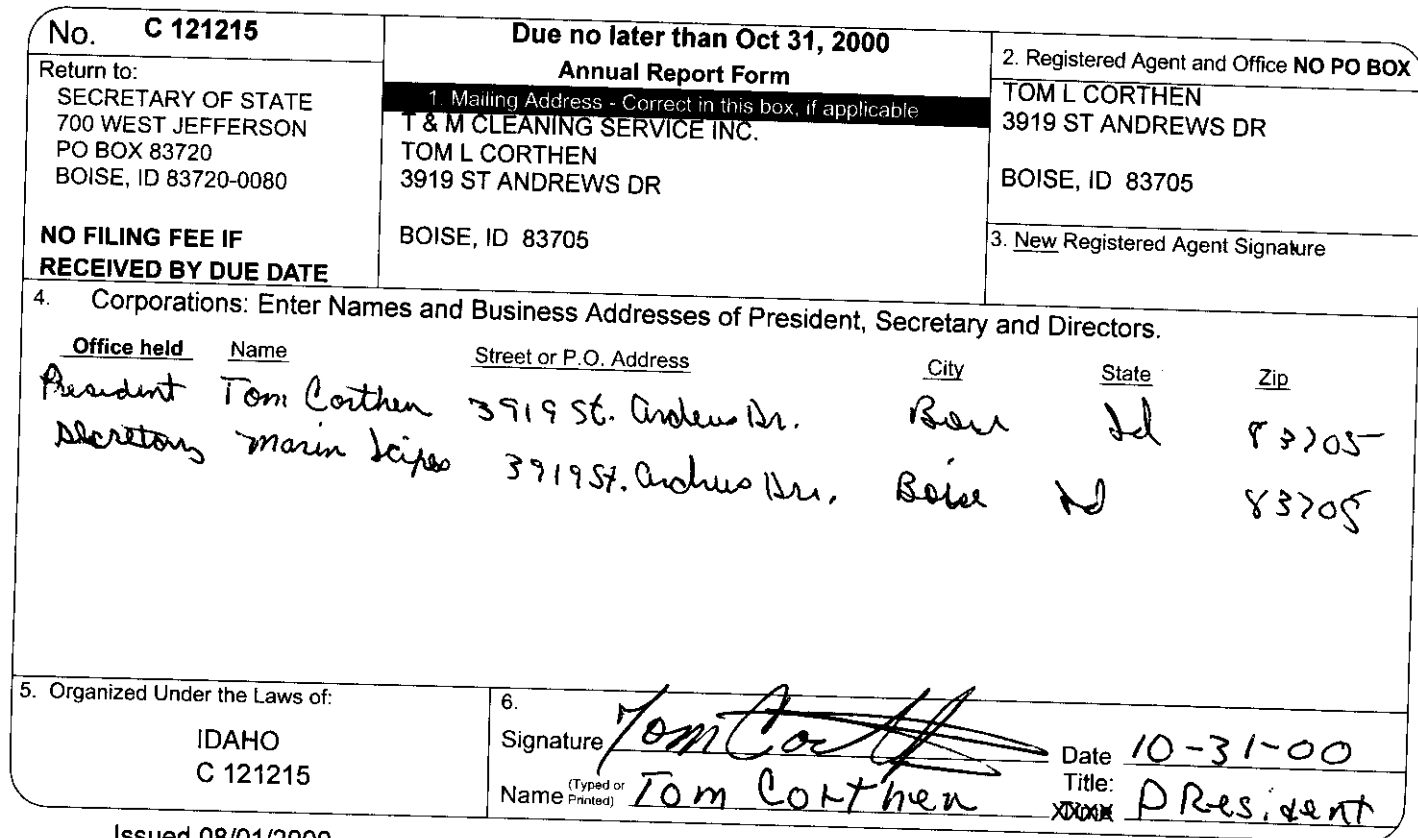 No. C 121215
Return to:
SECRETARY OF STATE
700 WEST JEFFERSON
PO BOX 83720
BOISE, ID 83720-0080
NO FILING FEE IF
RECEIVED BY DUE DATE
Due no later than Oct 31, 2000
Annual Report Form
1. Mailing Address - Correct in this box, if applicable
T & M CLEANING SERVICE INC.
TOM L CORTHEN
3919 ST ANDREWS DR
BOISE, ID 83705
2. Registered Agent and Office NO PO BOX
TOM L CORTHEN
3919 ST ANDREWS DR
BOISE, ID 83705
3. New Registered Agent Signature
4. Corporations: Enter Names and Business Addresses of President, Secretary and Directors.
Office held Name Street or P.O. Address City State Zip
President Tom Corthen 3919 St. Dr. Id 83705
Secretary 3919 St. Boise Id 83705
5. Organized Under the Laws of:
IDAHO
C 121215
6.
Signature Tom Date 10-31-00
Name (Typed or Printed) Tom Corthen Title: PResident
Issued 08/01/2000